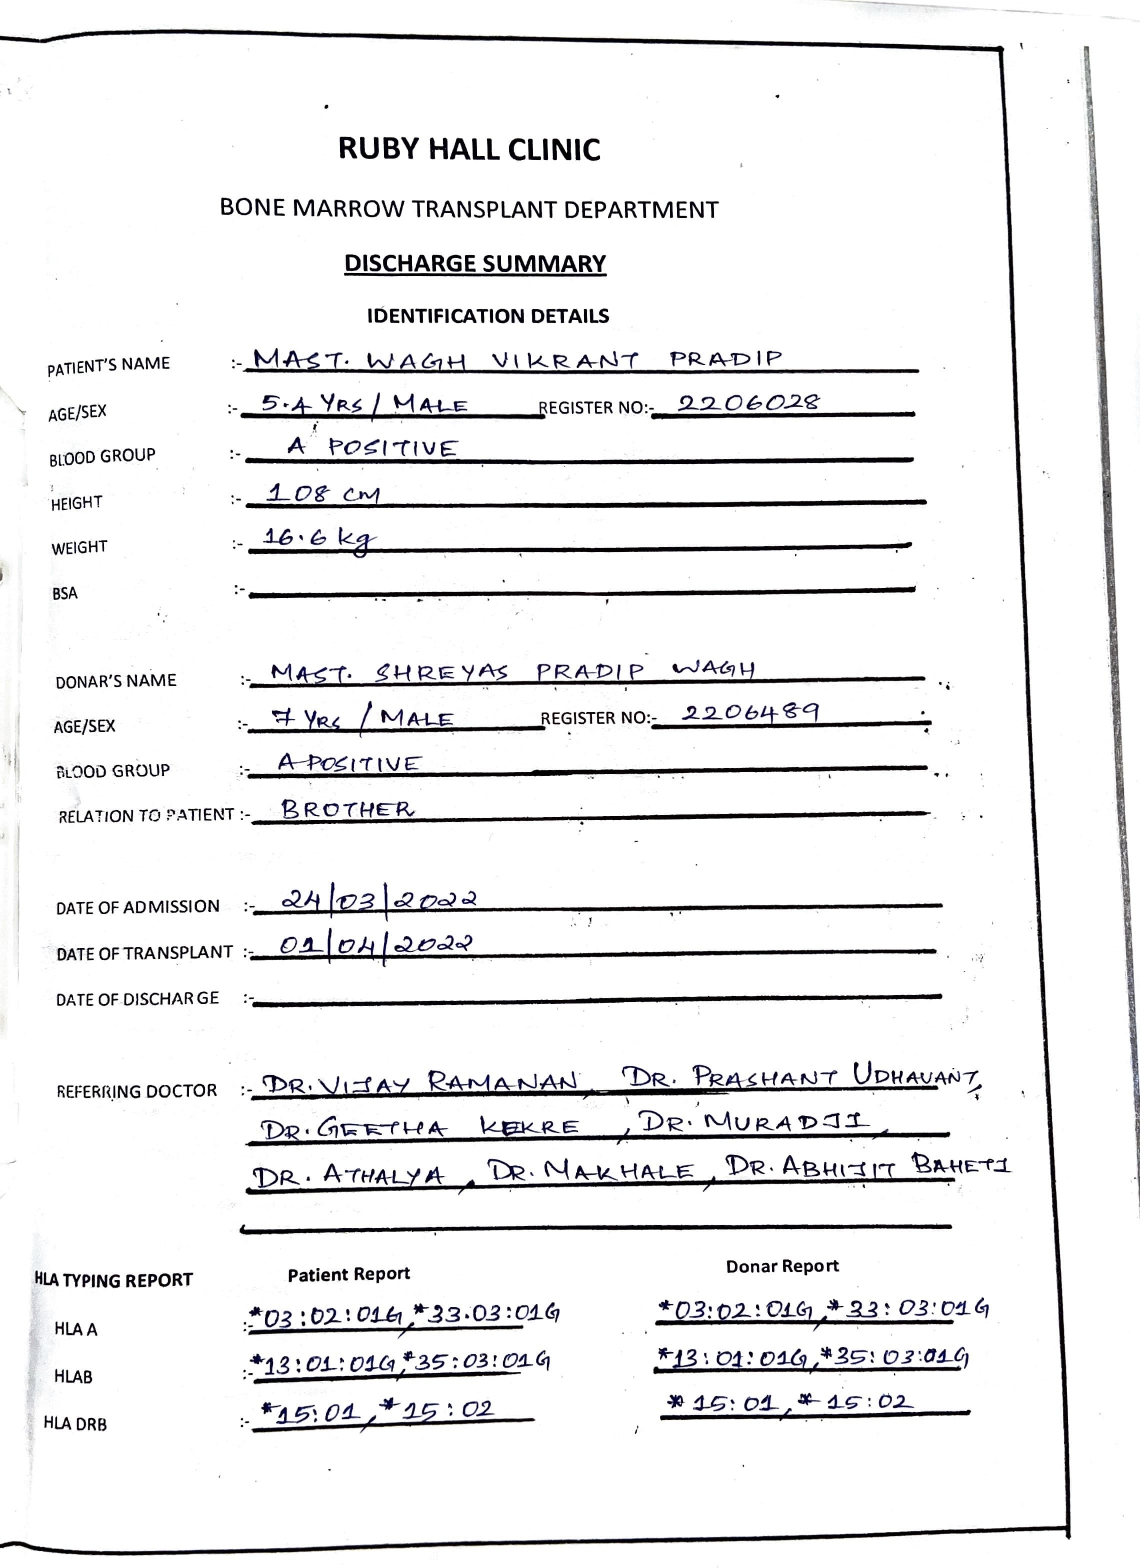 RUBY HALL CLINIC
BONE MARROW TRANSPLANT DEPARTMENT
DISCHARGE SUMMARY
IDENTIFICATION DETAILS
PATIENT'S NAME :- MAST. WAGH VIKRANT PRADIP
AGE/SEX :- 5.4 YRS / MALE REGISTER NO:- 2206028
BLOOD GROUP :- A POSITIVE
HEIGHT :- 108 cm
WEIGHT :- 16.6 kg
BSA :-
DONAR'S NAME :- MAST. SHREYAS PRADIP WAGH
AGE/SEX :- 7 YRS / MALE REGISTER NO:- 2206489
BLOOD GROUP :- A POSITIVE
RELATION TO PATIENT :- BROTHER
DATE OF ADMISSION :- 24/03/2022
DATE OF TRANSPLANT :- 01/04/2022
DATE OF DISCHARGE :-
REFERRING DOCTOR :- DR. VIJAY RAMANAN, DR. PRASHANT UDHAVANT,
DR. GEETHA KEKRE, DR. MURADJI,
DR. ATHALYA, DR. MAKHALE, DR. ABHIJIT BAHETI
HLA TYPING REPORT Patient Report Donar Report
HLA A :- *03:02:01G, *33.03:01G *03:02:01G, *33:03:01G
HLAB :- *13:01:01G, *35:03:01G *13:01:01G, *35:03:01G
HLA DRB :- *15:01, *15:02 *15:01, *15:02